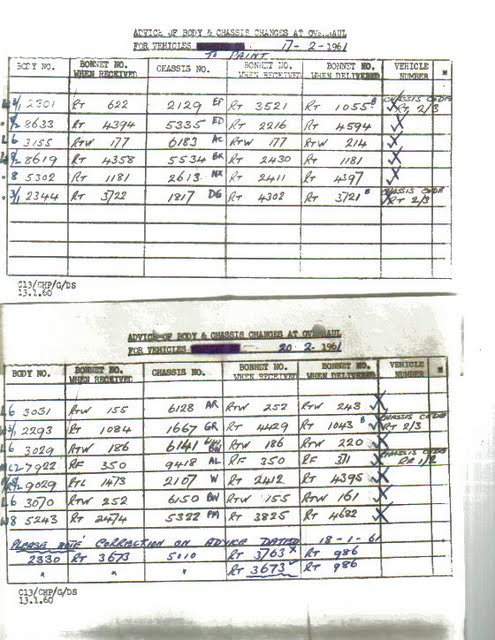 ADVICE OF BODY & CHASSIS CHANGES AT OVERHAUL
FOR VEHICLES TO PAINT 17-2-1961
BODY NO. BONNET NO. WHEN RECEIVED CHASSIS NO. BONNET NO. WHEN RECEIVED BONNET NO. WHEN DELIVERED VEHICLE NUMBER
3/1 2301 RT 622 2129 EF RT 3521 RT 1055 B CHASSIS CODE RT 2/3
8633 RT 4394 5335 ED RT 2216 RT 4594
L6 3155 RTW 177 6183 AC RTW 177 RTW 214
8619 RT 4358 5534 BR RT 2430 RT 1181
8 5302 RT 1181 2613 NX RT 2411 RT 4397
3/1 2344 RT 3722 1817 DG RT 4302 RT 3721 B CHASSIS CODE RT 2/3
C13/CHP/G/DS
13.1.60
ADVICE OF BODY & CHASSIS CHANGES AT OVERHAUL
FOR VEHICLES 20-2-1961
BODY NO. BONNET NO. WHEN RECEIVED CHASSIS NO. BONNET NO. WHEN RECEIVED BONNET NO. WHEN DELIVERED VEHICLE NUMBER
L6 3031 RTW 155 6128 AR RTW 252 RTW 243
3/1 2293 RT 1084 1667 GR RT 4429 RT 1043 B CHASSIS CODE RT 2/3
L6 3029 RTW 186 6141 BW RTW 186 RTW 220
7922 RF 350 9418 AL RF 350 RF 311 CHASSIS CODE 1/2
9029 RTL 1473 2107 W RT 2412 RT 4395
L6 3070 RTW 252 6150 BW RTW 155 RTW 161
W8 5243 RT 2474 5322 PM RT 3825 RT 4682
PLEASE NOTE CORRECTION ON ADVICE DATED 18-1-61
2330 RT 3673 5010 RT 3763 X RT 986
" " " RT 3673 RT 986
C13/CHP/G/DS
13.1.60